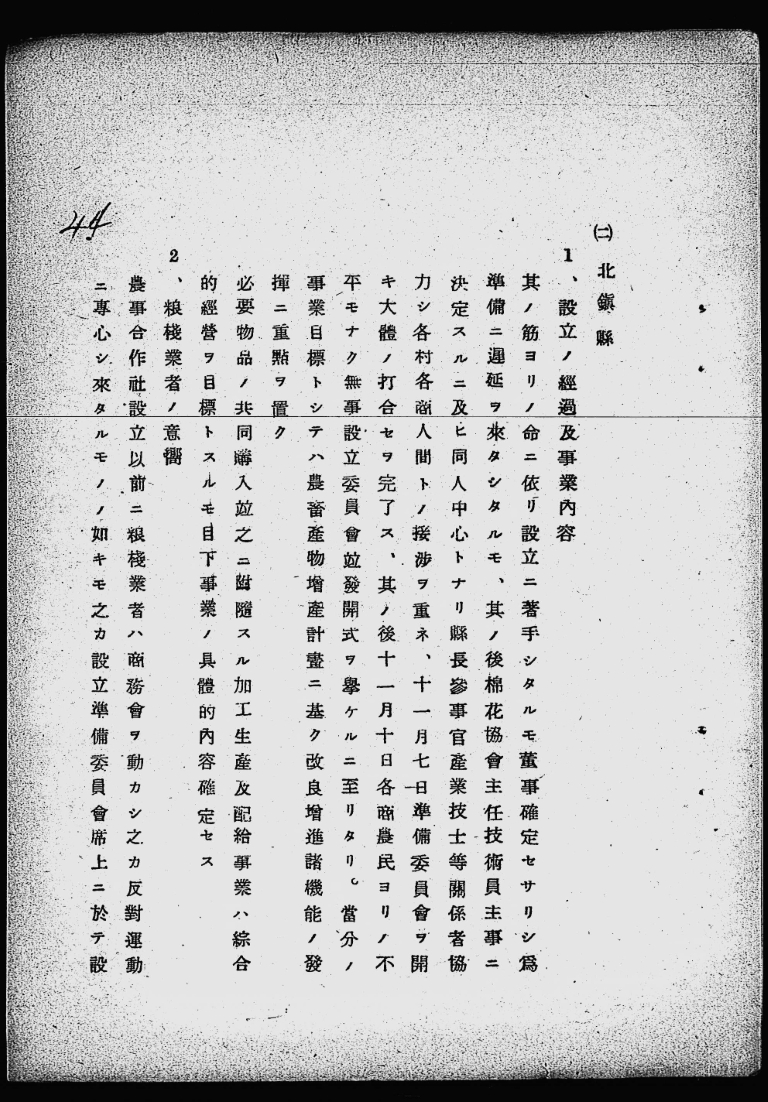 ㈡北鎭縣
1、設立ノ經過及事業內容
其ノ筋ヨリノ命ニ依リ設立ニ著手シタルモ董事確定セサリシ爲
準備ニ遲延ヲ來タシタルモ、其ノ後棉花協會主任技術員主事ニ
決定スルニ及ヒ同人中心トナリ縣長參事官產業技士等關係者協
力シ各村各商人間トノ接涉ヲ重ネ、十一月七日準備委員會ヲ開
キ大體ノ打合セヲ完了ス、其ノ後十一月十日各商農民ヨリノ不
平モナク無事設立委員會竝發開式ヲ擧ケルニ至リタリ。當分ノ
事業目標トシテハ農畜產物增產計畫ニ基ク改良增進諸機能ノ發
揮ニ重點ヲ置ク
必要物品ノ共同購入竝之ニ附隨スル加工生產及配給事業ハ綜合
的經營ヲ目標トスルモ目下事業ノ具體的內容確定セス
2、粮棧業者ノ意嚮
農事合作社設立以前ニ粮棧業者ハ商務會ヲ動カシ之カ反對運動
ニ專心シ來タルモノノ如キモ之カ設立準備委員會席上ニ於テ設
44